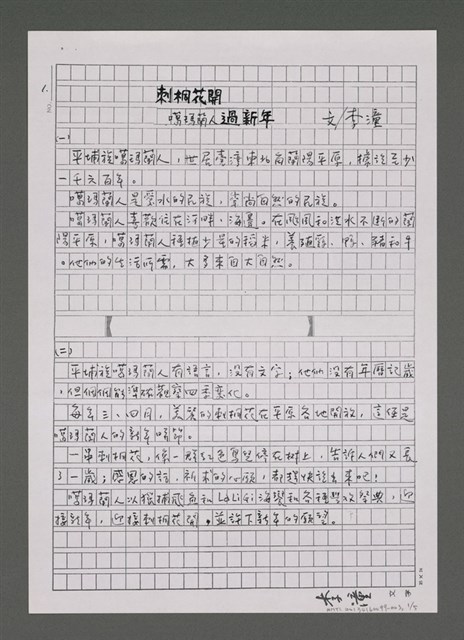 1.
NO.
刺桐花開
噶瑪蘭人過新年 文/李潼
(一)
平埔族噶瑪蘭人,世居臺灣東北角蘭陽平原,據說已少
一千六百年。
噶瑪蘭人是愛水的民族,崇尚自然的民族。
噶瑪蘭人喜歡住在河畔、海邊。在颱風和洪水不斷的蘭
陽平原,噶瑪蘭人種植少量的稻米,養雞、鴨、豬和牛
。他們的生活所需,大多來自大自然。
(二)
平埔族噶瑪蘭人有語言,沒有文字;他們沒有年曆記歲
,但個個能準確觀察四季變化。
每年三、四月,美麗的刺桐花在平原各地開放,這便是
噶瑪蘭人的新年時節。
一串刺桐花,像一群紅色鳥兒停在樹上,告訴人們又長
了一歲;感恩的話,新的心願,都趕快說出來吧!
噶瑪蘭人以捕飛魚和LaLiGi海祭和各種祭典,迎
接新年,迎接刺桐花開。並許下新年的願望。
李潼
1/5